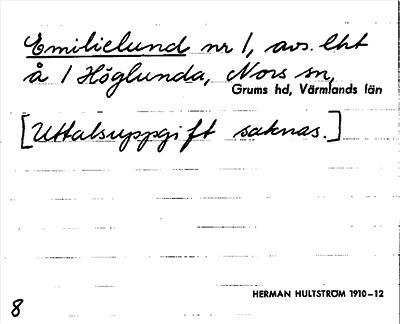 Emilielund nr 1, avs. lht
å 1 Höglunda, Nors sn,
Grums hd, Värmlands län
[Uttalsuppgift saknas.]
HERMAN HULTSTRÖM 1910–12
8